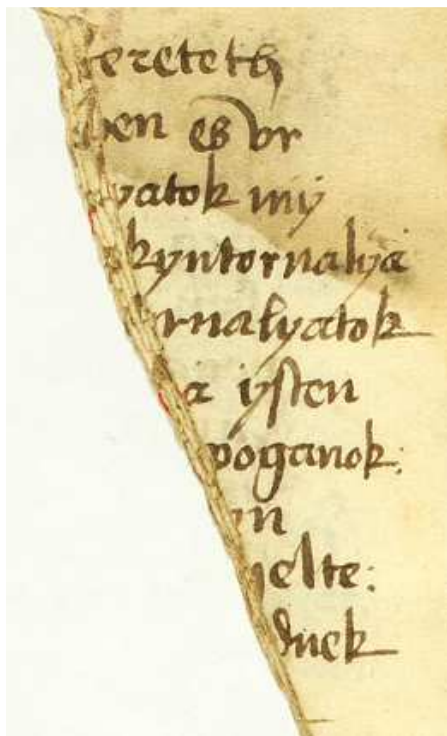 ereteth
ben es vr
yatok mÿ
kyntornalÿa
rnalyatok
a ÿsten
poganok:
n
ielte:
duek